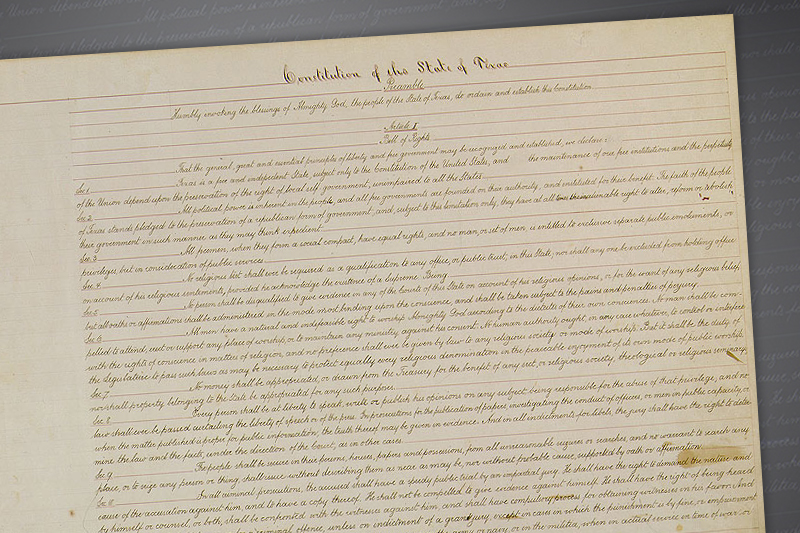 Constitution of the State of Texas
Preamble
Humbly invoking the blessings of Almighty God, the people of the State of Texas, do ordain and establish this Constitution.
Article I
Bill of Rights
That the general, great and essential principles of liberty and free government may be recognized and established, we declare:
Sec 1 Texas is a free and independent State, subject only to the Constitution of the United States, and the maintenance of our free institutions and the perpetuity
of the Union depend upon the preservation of the right of local self government, unimpaired to all the States.
Sec 2 All political power is inherent in the people, and all free governments are founded on their authority, and instituted for their benefit. The faith of the people
of Texas stands pledged to the preservation of a republican form of government, and, subject to this limitation only, they have at all times the inalienable right to alter, reform or abolish
their government in such manner as they may think expedient.
Sec 3 All freemen, when they form a social compact, have equal rights, and no man, or set of men, is entitled to exclusive separate public emoluments, or
privileges, but in consideration of public services.
Sec 4 No religious test shall ever be required as a qualification to any office, or public trust, in this State; nor shall any one be excluded from holding office
on account of his religious sentiments, provided he acknowledge the existence of a Supreme Being.
Sec 5 No person shall be disqualified to give evidence in any of the Courts of this State on account of his religious opinions, or for the want of any religious belief,
but all oaths or affirmations shall be administered in the mode most binding upon the conscience, and shall be taken subject to the pains and penalties of perjury.
Sec 6 All men have a natural and indefeasible right to worship Almighty God according to the dictates of their own consciences. No man shall be com-
pelled to attend, erect or support any place of worship, or to maintain any ministry against his consent. No human authority ought, in any case whatever, to control or interfere
with the rights of conscience in matters of religion, and no preference shall ever be given by law to any religious society or mode of worship. But it shall be the duty of
the Legislature to pass such laws as may be necessary to protect equally every religious denomination in the peaceable enjoyment of its own mode of public worship.
Sec 7 No money shall be appropriated, or drawn from the Treasury for the benefit of any sect, or religious society, theological or religious seminary,
nor shall property belonging to the State be appropriated for any such purposes.
Sec 8 Every person shall be at liberty to speak, write or publish his opinions on any subject, being responsible for the abuse of that privilege; and no
law shall ever be passed curtailing the liberty of speech or of the press. In prosecutions for the publication of papers investigating the conduct of officers, or men in public capacity, or
when the matter published is proper for public information, the truth thereof may be given in evidence. And in all indictments for libels, the jury shall have the right to deter-
mine the law and the facts, under the direction of the Court, as in other cases.
Sec 9 The people shall be secure in their persons, houses, papers and possessions, from all unreasonable seizures or searches, and no warrant to search any
place, or to seize any person or thing, shall issue without describing them as near as may be, nor without probable cause, supported by oath or affirmation.
Sec 10 In all criminal prosecutions, the accused shall have a speedy public trial by an impartial jury. He shall have the right to demand the nature and
cause of the accusation against him, and to have a copy thereof. He shall not be compelled to give evidence against himself. He shall have the right of being heard
by himself or counsel, or both, shall be confronted with the witnesses against him, and shall have compulsory process for obtaining witnesses in his favor. And
a criminal offense, unless on indictment of a grand jury, except in cases in which the punishment is by fine, or imprisonment
army or navy, or in the militia, when in actual service in time of war or